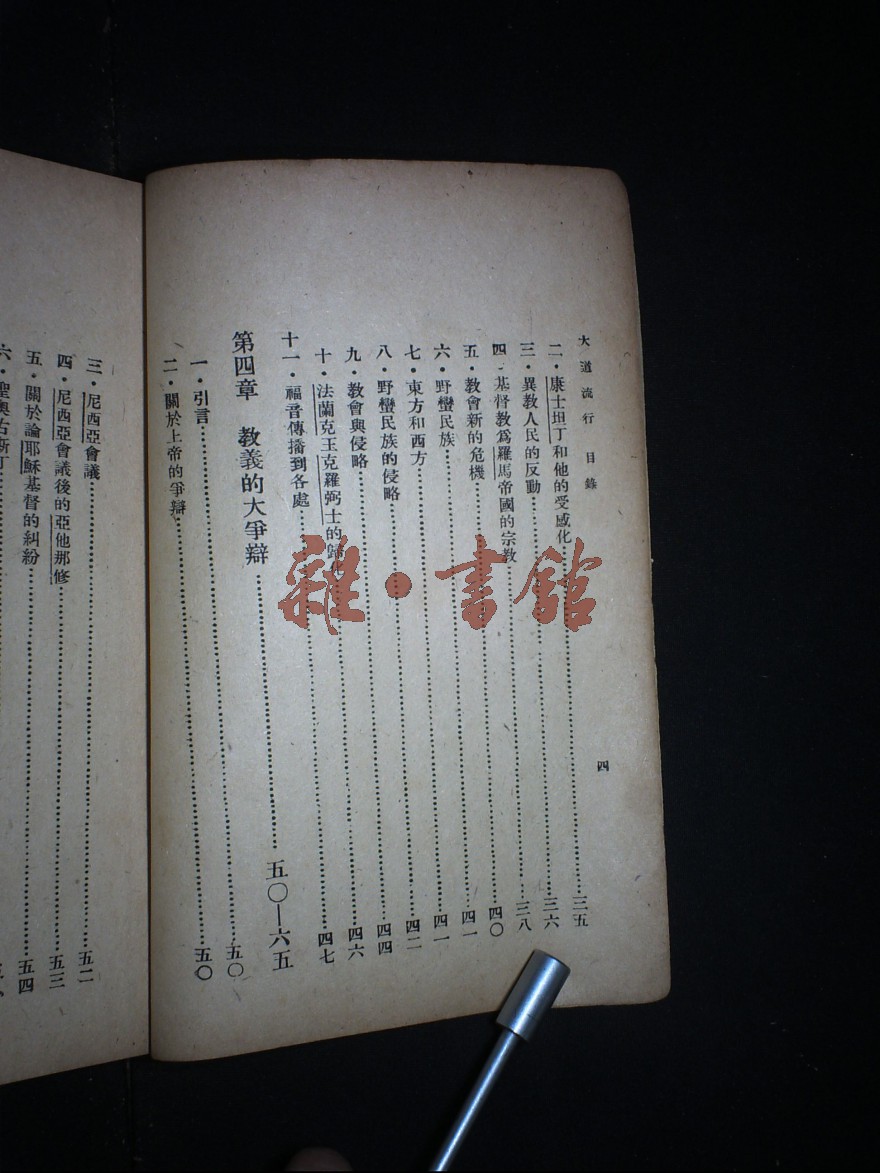 大道流行 目錄 四
二・康士坦丁和他的受感化……三五
三・異教人民的反動……三六
四・基督教爲羅馬帝國的宗教……三八
五・教會新的危機……四〇
六・野蠻民族……四一
七・東方和西方……四一
八・野蠻民族的侵略……四二
九・教會與侵略……四四
十・法蘭克王克羅弼士的歸化……四六
十一・福音傳播到各處……四七
第四章 教義的大爭辯……五〇—六五
一・引言……五〇
二・關於上帝的爭辯……五〇
三・尼西亞會議……五二
四・尼西亞會議後的亞他那修……五三
五・關於論耶穌基督的糾紛……五四
六・聖奧古斯丁
雜・書館